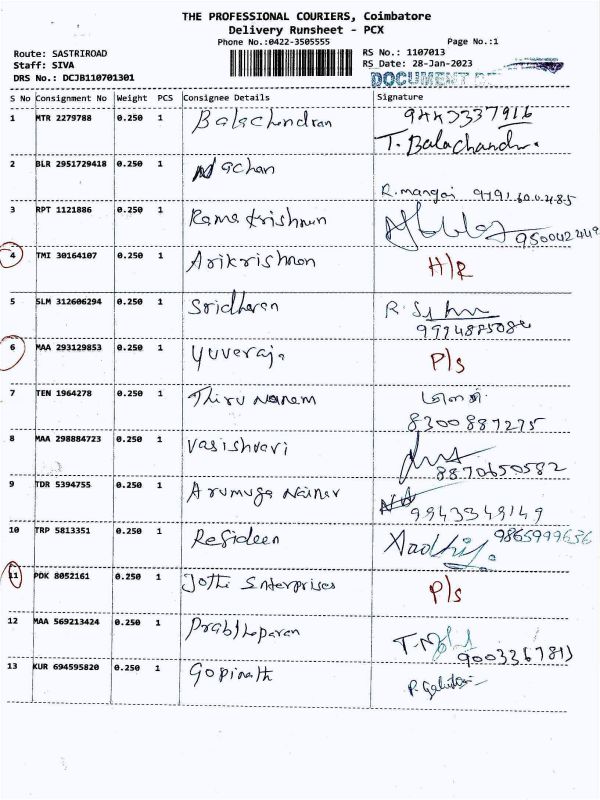 THE PROFESSIONAL COURIERS, Coimbatore
Delivery Runsheet - PCX
Phone No.:0422-3505555
Page No.:1
Route: SASTRIROAD
RS No.: 1107013
Staff: SIVA
RS Date: 28-Jan-2023
DRS No.: DCJB110701301
DOCUMENT
S No Consignment No Weight PCS Consignee Details Signature
1 MTR 2279788 0.250 1 Balachendran 9443337916
T. Balachandr.
2 BLR 2951729418 0.250 1 Nachan
R. mangai
3 RPT 1121886 0.250 1 Ramakrishnan
950042449
4 TMI 30164107 0.250 1 Arikrishnan H/R
5 SLM 312606294 0.250 1 Sridharan
9994885086
6 MAA 293129853 0.250 1 Yuveraja P/s
7 TEN 1964278 0.250 1 Thirunanam
8300887275
8 MAA 298884723 0.250 1 Vasishvari
8870650582
9 TDR 5394755 0.250 1 Arumuga Nainar
9943349149
10 TRP 5813351 0.250 1 Rafideen 9865999636
11 PDK 8052161 0.250 1 Jothi Enterprises P/s
12 MAA 569213424 0.250 1 Prabhaharan
13 KUR 694595820 0.250 1 Gopinath